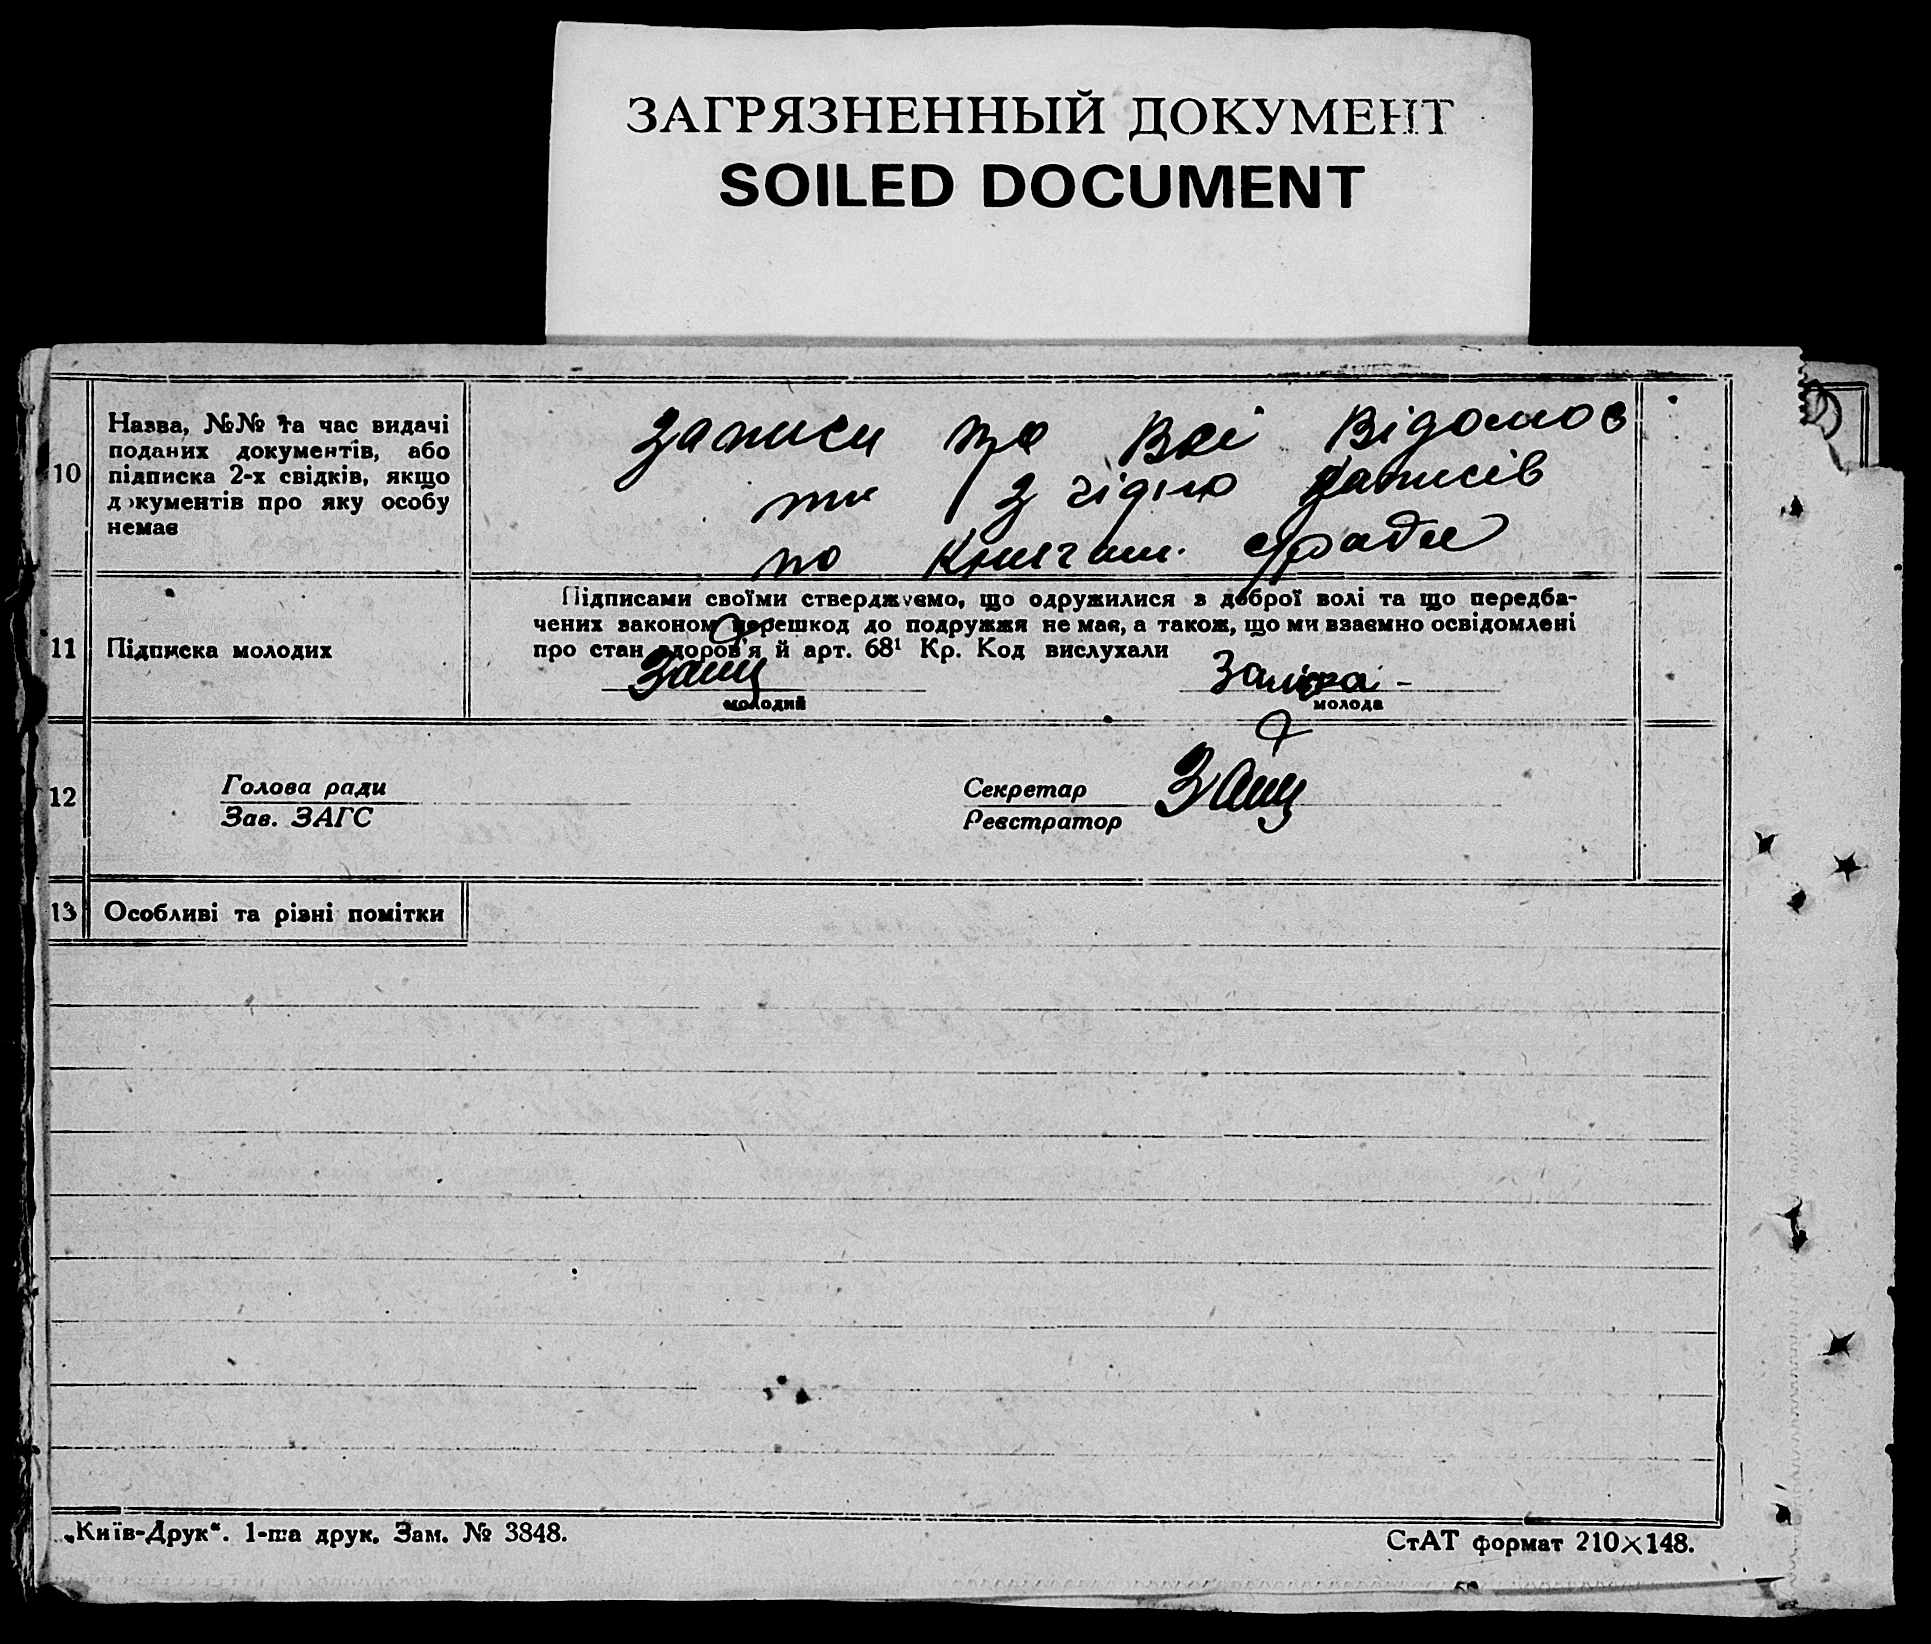 ЗАГРЯЗНЕННЫЙ ДОКУМЕНТ
SOILED DOCUMENT
10
Назва, №№ та час видачі
поданих документів, або
підписка 2-х свідків, якщо
документів про яку особу
немає
записи та всі відомос
ти з гідно записів
по книгам с/ради
11
Підписка молодих
Підписами своїми стверджуємо, що одружилися з доброї волі та що передба-
чених законом перешкод до подружжя не має, а також, що ми взаємно освідомлені
про стан здоров'я й арт. 68¹ Кр. Код вислухали
молодий
молода
12
Голова ради
Зав. ЗАГС
Секретар
Реєстратор
13
Особливі та різні помітки
„Київ-Друк“. 1-ша друк. Зам. № 3848.
СтАТ формат 210×148.